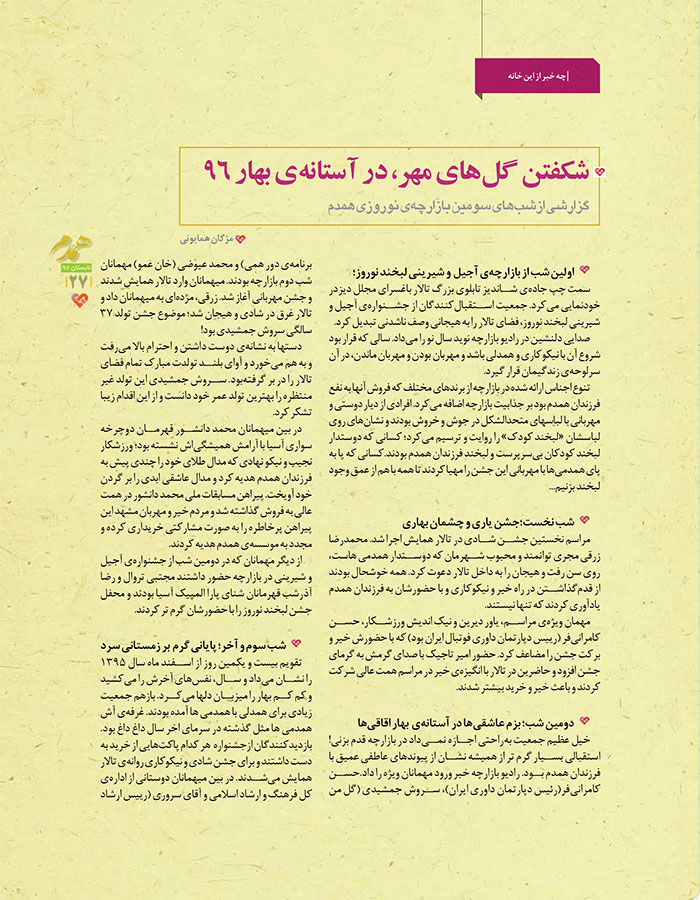 چه خبر از این خانه
شکفتن گل‌های مهر، در آستانه‌ی بهار ۹۶
گزارشی از شب‌های سومین بازارچه‌ی نوروزی همدم
مژگان همایونی
همدم
تابستان ۹۶
۲۷
اولین شب از بازارچه‌ی آجیل و شیرینی لبخند نوروز؛
سمت چپ جاده‌ی شاندیز تابلوی بزرگ تالار باغسرای مجلل دیزدر
خودنمایی می‌کرد. جمعیت استقبال کنندگان از جشنواره‌ی آجیل و
شیرینی لبخند نوروز، فضای تالار را به هیجانی وصف ناشدنی تبدیل کرد.
صدایی دلنشین در رادیو بازارچه نوید سال نو را می‌داد. سالی که قرار بود
شروع آن با نیکوکاری و همدلی باشد و مهربان بودن و مهربان ماندن، در آن
سرلوحه‌ی زندگیمان قرار گیرد.
تنوع اجناس ارائه شده در بازارچه از برندهای مختلف که فروش آنها به نفع
فرزندان همدم بود بر جذابیت بازارچه اضافه می‌کرد. افرادی از دیار دوستی و
مهربانی با لباسهای متحدالشکل در جوش و خروش بودند و نشان‌های روی
لباسشان «لبخند کودک» را روایت و ترسیم می‌کرد؛ کسانی که دوستدار
لبخند کودکان بی‌سرپرست و لبخند فرزندان همدم بودند. کسانی که پا به
پای همدمی‌ها با مهربانی این جشن را مهیا کردند تا همه با هم از عمق وجود
لبخند بزنیم...
شب نخست؛ جشن یاری و چشمان بهاری
مراسم نخستین جشن شادی در تالار همایش اجرا شد. محمدرضا
زرقی مجری توانمند و محبوب شهرمان که دوستدار همدمی هاست،
روی سن رفت و هیجان را به داخل تالار دعوت کرد. همه خوشحال بودند
از قدم گذاشتن در راه خیر و نیکوکاری و با حضورشان به فرزندان همدم
یادآوری کردند که تنها نیستند.
مهمان ویژه‌ی مراسم، یاور دیرین و نیک اندیش ورزشکار، حسن
کامرانی‌فر (رییس دپارتمان داوری فوتبال ایران بود) که با حضورش خیر و
برکت جشن را مضاعف کرد. حضور امیر تاجیک با صدای گرمش به گرمای
جشن افزود و حاضرین در تالار با انگیزه‌ی خیر در مراسم همت عالی شرکت
کردند و باعث خیر و خرید بیشتر شدند.
دومین شب؛ بزم عاشقی‌ها در آستانه‌ی بهار اقاقی‌ها
خیل عظیم جمعیت به‌راحتی اجازه نمی‌داد در بازارچه قدم بزنی!
استقبالی بسیار گرم تر از همیشه نشان از پیوندهای عاطفی عمیق با
فرزندان همدم بود. رادیو بازارچه خبر ورود مهمانان ویژه را داد. حسن
کامرانی‌فر(رئیس دپارتمان داوری ایران)، سروش جمشیدی (گل من
برنامه‌ی دور همی) و محمد عیوضی (خان عمو) مهمانان
شب دوم بازارچه بودند. میهمانان وارد تالار همایش شدند
و جشن مهربانی آغاز شد. زرقی، مژده‌ای به میهمانان داد و
تالار غرق در شادی و هیجان شد؛ موضوع جشن تولد ۳۷
سالگی سروش جمشیدی بود!
دستها به نشانه‌ی دوست داشتن و احترام بالا می‌رفت
و به هم می‌خورد و آوای بلند تولدت مبارک تمام فضای
تالار را در بر گرفته‌بود. سروش جمشیدی این تولد غیر
منتظره را بهترین تولد عمر خود دانست و از این اقدام زیبا
تشکر کرد.
در بین میهمانان محمد دانشور قهرمان دوچرخه
سواری آسیا با آرامش همیشگی‌اش نشسته بود؛ ورزشکار
نجیب و نیکو نهادی که مدال طلای خود را چندی پیش به
فرزندان همدم هدیه کرد و مدال عاشقی ابدی را بر گردن
خود آویخت. پیراهن مسابقات ملی محمد دانشور در همت
عالی به فروش گذاشته شد و مردم خیر و مهربان مشهد این
پیراهن پرخاطره را به صورت مشارکتی خریداری کرده و
مجدد به موسسه‌ی همدم هدیه کردند.
از دیگر مهمانان که در دومین شب از جشنواره‌ی آجیل
و شیرینی در بازارچه حضور داشتند مجتبی تروال و رضا
آذرشب قهرمانان شنای پارا المپیک آسیا بودند و محفل
جشن لبخند نوروز را با حضورشان گرم تر کردند.
شب سوم و آخر؛ پایانی گرم بر زمستانی سرد
تقویم بیست و یکمین روز از اسفند ماه سال ۱۳۹۵
را نشان می‌داد و سال، نفس‌های آخرش را می‌کشید
و کم کم بهار را میزبان دلها می‌کرد. بازهم جمعیت
زیادی برای همدلی با همدمی ها آمده بودند. غرفه‌ی آش
همدمی ها مثل گذشته در سرمای اخر سال داغ داغ بود.
بازدیدکنندگان از جشنواره هر کدام پاکت‌هایی از خرید به
دست داشتند و برای جشن شادی و نیکوکاری روانه‌ی تالار
همایش می‌شدند. در بین میهمانان دوستانی از اداره‌ی
کل فرهنگ و ارشاد اسلامی و آقای سروری (رییس ارشاد